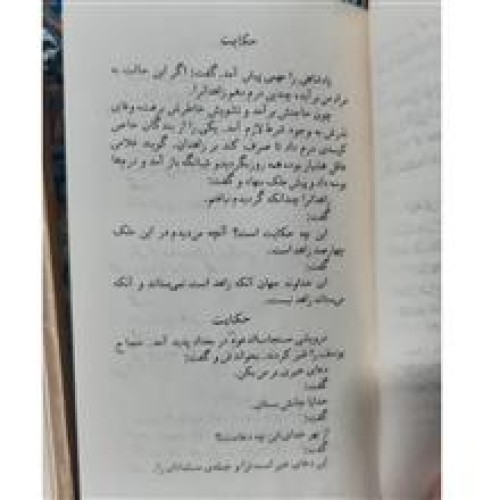 حکایت
پادشاهی را مهمی پیش آمد. گفت: اگر این حالت به
مراد من برآید چندین درم دهم زاهدان را.
چون حاجتش برآمد و تشویش خاطرش برفت، وفای
نذرش به وجود شرط لازم آمد. یکی را از بندگان خاص
کیسه‌ی درم داد تا صرف کند بر زاهدان. گویند غلامی
عاقل هشیار بود. همه روز بگردید و شبانگه باز آمد و درم‌ها
بوسه داد و پیش ملک بنهاد و گفت:
زاهدان را چندانکه گردیدم نیافتم.
گفت:
این چه حکایت است؟ آنچه من دیدم در این ملک
چهارصد زاهد است.
گفت:
ای خداوند جهان آنکه زاهد است نمی‌ستاند و آنکه
می‌ستاند زاهد نیست.
حکایت
درویشی مستجاب‌الدعوة در بغداد پدید آمد. حجاج
یوسف را خبر کردند. بخواندش و گفت:
دعای خیری بر من بکن.
گفت:
خدایا جانش بستان.
گفت:
از بهر خدای این چه دعاست؟
این دعای خیر است ترا و جمله‌ی مسلمانان را.